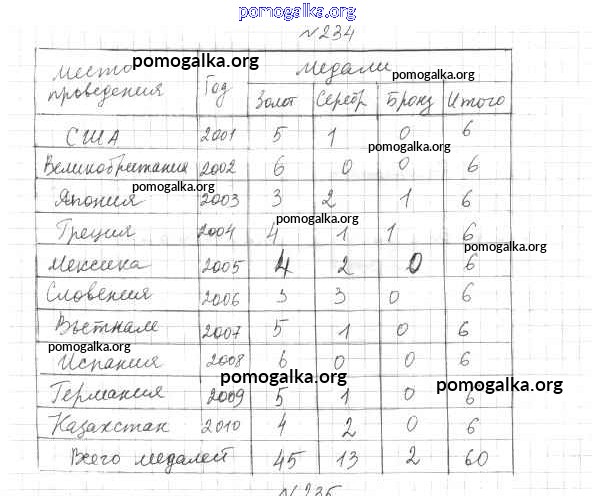 pomogalka.org
№234
Место проведения Год Медали
Золот Серебр Бронз Итого
США 2001 5 1 0 6
Великобритания 2002 6 0 0 6
Япония 2003 3 2 1 6
Греция 2004 4 1 1 6
Мексика 2005 4 2 0 6
Словения 2006 3 3 0 6
Вьетнам 2007 5 1 0 6
Испания 2008 6 0 0 6
Германия 2009 5 1 0 6
Казахстан 2010 4 2 0 6
Всего медалей 45 13 2 60
№235
pomogalka.org
pomogalka.org
pomogalka.org
pomogalka.org
pomogalka.org
pomogalka.org
pomogalka.org
pomogalka.org
pomogalka.org